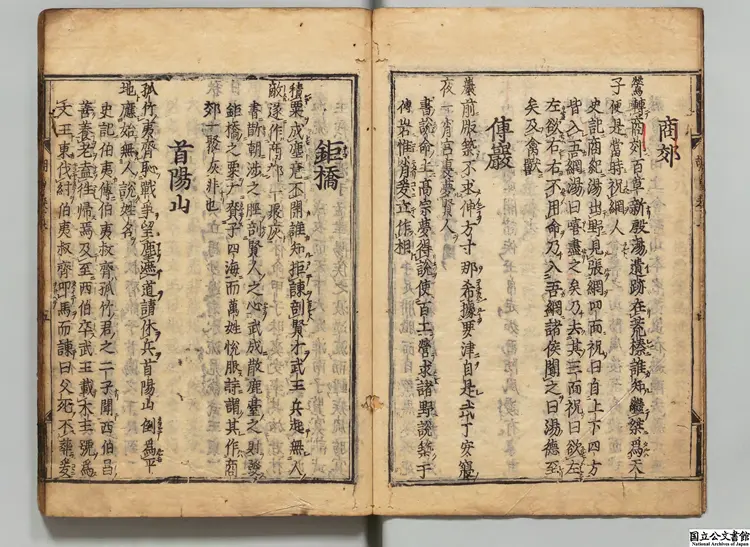 商郊
鶯囀商郊百草新殷湯遺跡在荒榛誰知繼桀爲天
子便是當時祝網人
史記商紀湯出野見張網四面祝曰自上下四方
皆入吾網湯曰嘻盡之矣乃去其三面祝曰欲左
左欲右右不用命乃入吾網諸侯聞之曰湯德至
矣及禽獸
傅巖
巖前版築不求伸方寸那希據要津自是武丁安寢
夜一宵宮裏夢賢人
書說命上高宗夢得說使百工營求諸野說築于
傅岩惟肖爰立作相
鉅橋
積粟成塵竟不開誰知拒諫剖賢才武王兵起無人
敵遂作商郊一聚灰
書斮朝涉之脛剖賢人之心武成散鹿臺之財發
鉅橋之粟大賚于四海而萬姓悅服詩謂其作商
郊一聚灰非也
首陽山
孤竹夷齊恥戰爭望塵遮道請休兵首陽山倒爲平
地應始無人說姓名
史記伯夷傳伯夷叔齊孤竹君之二子聞西伯昌
善養老盍往歸焉及至西伯卒武王載木主號爲
文王東伐紂伯夷叔齊叩馬而諫曰父死不葬爰
国立公文書館
National Archives of Japan